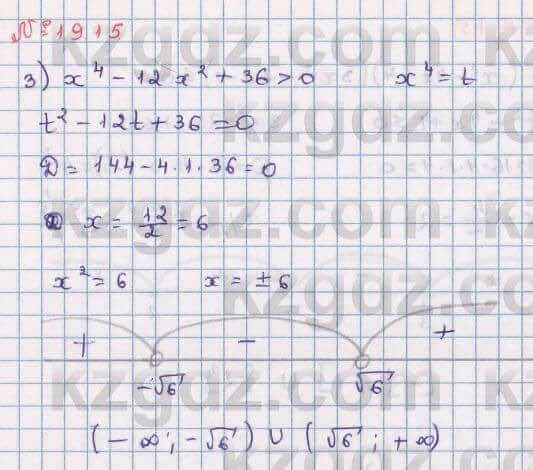 № 1915
3) x⁴ - 12x² + 36 > 0 x⁴ = t
t² - 12t + 36 = 0
D = 144 - 4·1·36 = 0
x = 12/2 = 6
x² = 6 x = ±6
+ - +
-√6 √6
(-∞; -√6) ∪ (√6; +∞)
kzgdz.com
kzgdz.com
kzgdz.com
kzgdz.com
kzgdz.com